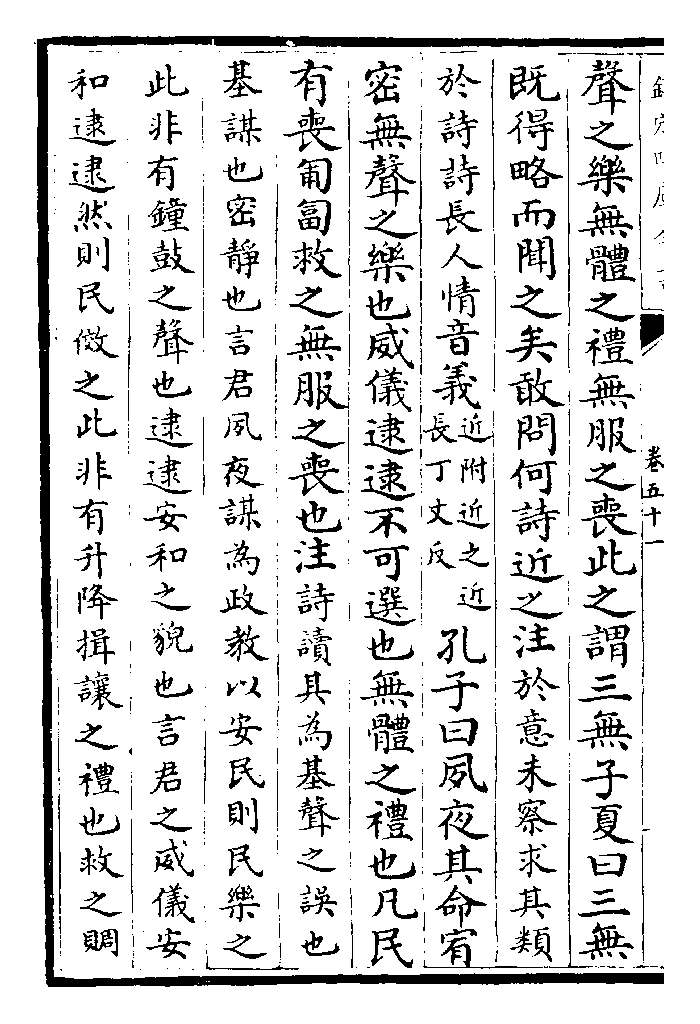 聲之樂無體之禮無服之喪此之謂三無子夏曰三無
既得略而聞之矣敢問何詩近之注於意未察求其類
於詩詩長人情音義近附近之近長丁丈反孔子曰夙夜其命宥
密無聲之樂也威儀逮逮不可選也無體之禮也凡民
有喪匍匐救之無服之喪也注詩讀其為基聲之誤也
基謀也密靜也言君夙夜謀為政教以安民則民樂之
此非有鐘鼓之聲也逮逮安和之貌也言君之威儀安
和逮逮然則民傚之此非有升降揖讓之禮也救之賙
卷五十一